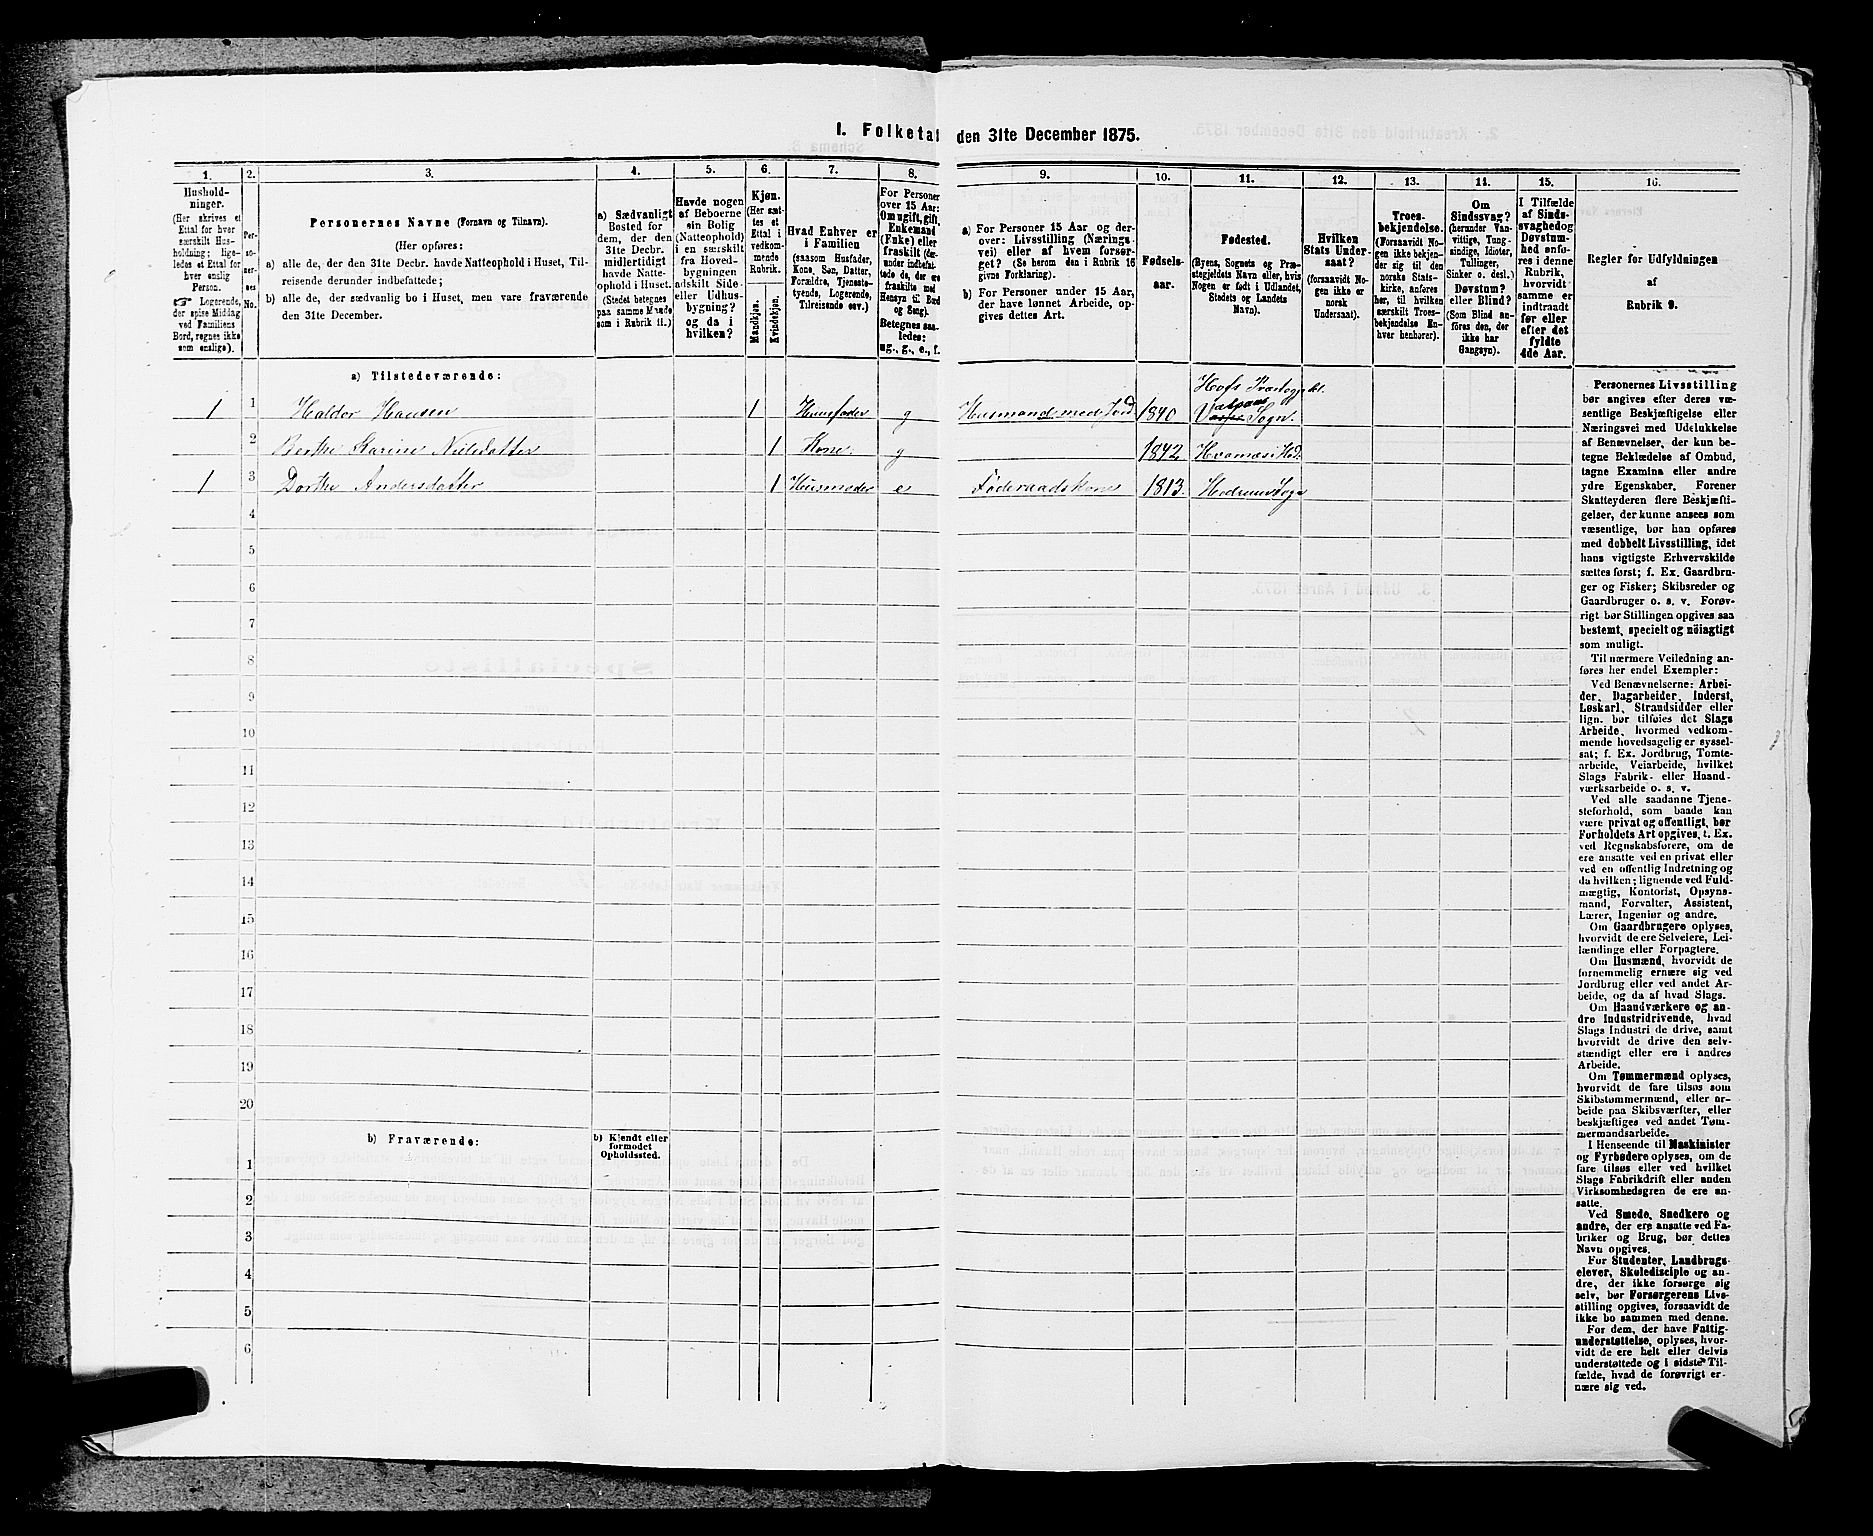 I. Folketal den 31te December 1875.
1. 2. 3. 4. 5. 6. 7. 8. 9. 10. 11. 12. 13. 14. 15. 16.
Hushold-
ninger.
(Her skrives et
Ettal for hver
særskilt Hus-
holdning; lige-
ledes et Ettal for
hver enslig
Person.
☞ Logerende,
der spise Middag
ved Familiens
Bord, regnes ikke
som enslige).
Per-
so-
ner-
nes
No.
Personernes Navne (Fornavn og Tilnavn).
(Her opføres:
a) alle de, der den 31te Decbr. havde Natteophold i Huset, Til-
reisende derunder indbefattede;
b) alle de, der sædvanlig bo i Huset, men vare fraværende
den 31te December.
a) Sædvanligt
Bosted for
dem, der den
31te Decbr.
midlertidigt
havde Natte-
ophold i Huset.
(Stedet betegnes
paa samme Maade
som i Rubrik 11.)
Havde nogen
af Beboerne
sin Bolig
(Natteophold)
i en særskilt
fra Hoved-
bygningen
adskilt Side-
eller Udhus-
bygning?
og da i
hvilken?
Kjøn.
(Her sæt-
tes et
Ettal i
vedkom-
mende
Rubrik.
Mandkjøn.
Kvindekjøn.
Hvad Enhver er
i Familien
(saasom Husfader,
Kone, Søn, Datter,
Forældre, Tjeneste-
tyende, Logerende,
Tilreisende osv.)
For Personer
over 15 Aar:
Om ugift, gift,
Enkemand
(Enke) eller
fraskilt (der-
under indbefat-
tede de, der ere
fraskilte med
Hensyn til Bord
og Seng).
Betegnes saa-
ledes:
ug., g., e., f.
a) For Personer 15 Aar og der-
over: Livsstilling (Nærings-
vei) eller af hvem forsør-
get? (Se herom den i Rubrik 16
givne Forklaring).
b) For Personer under 15 Aar,
der have lønnet Arbeide, op-
gives dettes Art.
Fødsels-
aar.
Fødested.
(Byens, Sognets og Præ-
stegjeldets Navn eller, hvis
Nogen er født i Udlandet,
Stedets og Landets
Navn).
Hvilken
Stats Under-
saat?
(forsaavidt No-
gen ikke er
norsk
Undersaat).
Troes-
bekjendelse.
(Forsaavidt No-
gen ikke bekjen-
der sig til den
norske Stats-
kirke, anføres
her, til hvilken
særskilt Troes-
bekjendelse En-
hver henhører).
Om
Sindssvag?
(herunder Van-
vittige, Tung-
sindige, Idioter,
Tullinger,
Sinker o. desl.)
Døvstum?
eller Blind?
(Som Blind an-
føres den, der
ikke har
Gangsyn).
I Tilfælde
af Sinds-
svaghed og
Døvstum-
hed anfø-
res i denne
Rubrik,
hvorvidt
samme er
indtraadt
før eller
efter det
fyldte
4de Aar.
Regler for Udfyldningen
af
Rubrik 9.
a) Tilstedeværende:
1 1 Halder Hansen 1 Huusfader g Husmand med Jord 1840 Hofs Præstegjeld. Sogn.
2 Berthe Karine Nielsdatter 1 Kone g 1842
1 3 Dorthe Andersdatter 1 Husmoder e Føderaadskone 1813. Hedrum Sogn
4
5
6
7
8
9
10
11
12
13
14
15
16
17
18
19
20
b) Fraværende:
b) Kjendt eller
formodet
Opholdssted.
1
2
3
4
5
6
Personernes Livsstilling
bør angives efter deres væ-
sentlige Beskjæftigelse eller
Næringsvei med Udelukkelse
af Benævnelser, der kun be-
tegne Beklædelse af Ombud,
tagne Examina eller andre
ydre Egenskaber. Forener
Skatteyderen flere Beskjæfti-
gelser, der kunne ansees som
væsentlige, bør han opføres
med dobbelt Livsstilling, idet
hans vigtigste Erhvervskilde
sættes først; f. Ex. Gaardbru-
ger og Fisker; Skibsreder og
Gaardbruger o. s. v. Forøv-
rigt bør Stillingen opgives saa
bestemt, specielt og nøiagtigt
som muligt.
Til nærmere Veiledning an-
føres her endel Exempler:
Ved Benævnelserne: Arbei-
der, Dagarbeider, Inderst,
Løskarl, Strandsidder eller
lign. bør tilføies det Slags
Arbeide, hvormed vedkom-
mende hovedsagelig er syssel-
sat; f. Ex. Jordbrug, Tomte-
arbeide, Veiarbeide, hvilket
Slags Fabrik- eller Haand-
værksarbeide o. s. v.
Ved alle saadanne Tjene-
steforhold, som baade kan
være privat og offentligt, bør
Forholdets Art opgives, t. Ex.
ved Regnskabsførere, om de
ere ansatte ved en privat eller
ved en offentlig Indretning og
da hvilken; lignende ved Fuld-
mægtig, Kontorist, Opsyns-
mand, Forvalter, Assistent,
Lærer, Ingeniør og andre.
Om Gaardbrugere oplyses,
hvorvidt de ere Selveiere, Lei-
lændinge eller Forpagtere.
Om Husmænd, hvorvidt de
fornemmelig ernære sig ved
Jordbrug eller ved andet Ar-
beide, og da af hvad Slags.
Om Haandværkere og an-
dre Industridrivende, hvad
Slags Industri de drive, samt
hvorvidt de drive den selv-
stændigt eller ere i andres
Arbeide.
Om Tømmermænd oplyses,
hvorvidt de fare tilsøs som
Skibstømmermænd, eller ar-
beide paa Skibsværfter, eller
beskjæftiges ved andet Tøm-
mermandsarbeide.
I Henseende til Maskinister
og Fyrbødere oplyses, om de
fare tilsøs eller ved hvilket
Slags Fabrikdrift eller anden
Virksomhedsgren de ere an-
satte.
Ved Smede, Snedkere og
andre, der ere ansatte ved Fa-
briker og Brug, bør dettes
Navn opgives.
For Studenter, Landbrugs-
elever, Skoledisciple og an-
dre, der ikke forsørge sig
selv, bør Forsørgerens Livs-
stilling opgives, forsaavidt de
ikke bo sammen med denne.
For dem, der have Fattig-
understøttelse, oplyses, hvor-
vidt de ere helt eller delvis
understøttede og i sidste Til-
fælde, hvad de forøvrigt er-
nære sig ved.